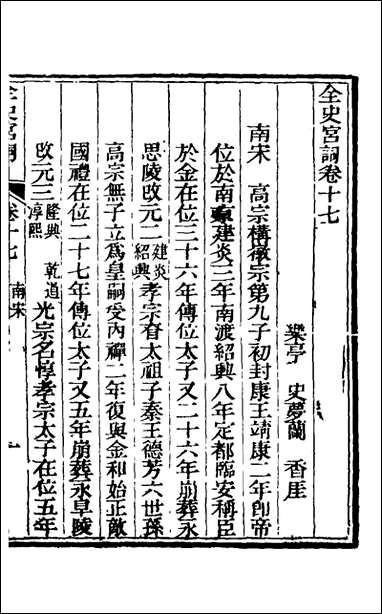 全史宮詞卷十七
樂亭　史夢蘭　香厓
南宋　高宗構徽宗第九子初封康王靖康二年卽帝
位於南京建炎三年南渡紹興八年定都臨安稱臣
於金在位三十六年傳位太子又二十六年崩葬永
思陵改元二建炎紹興孝宗眘太祖子秦王德芳六世孫
高宗無子立爲皇嗣受內禪二年復與金和始正敵
國禮在位二十七年傳位太子又五年崩葬永阜陵
改元三隆興乾道淳熙光宗名惇孝宗太子在位五年
全史宮詞
卷十七　南宋
一